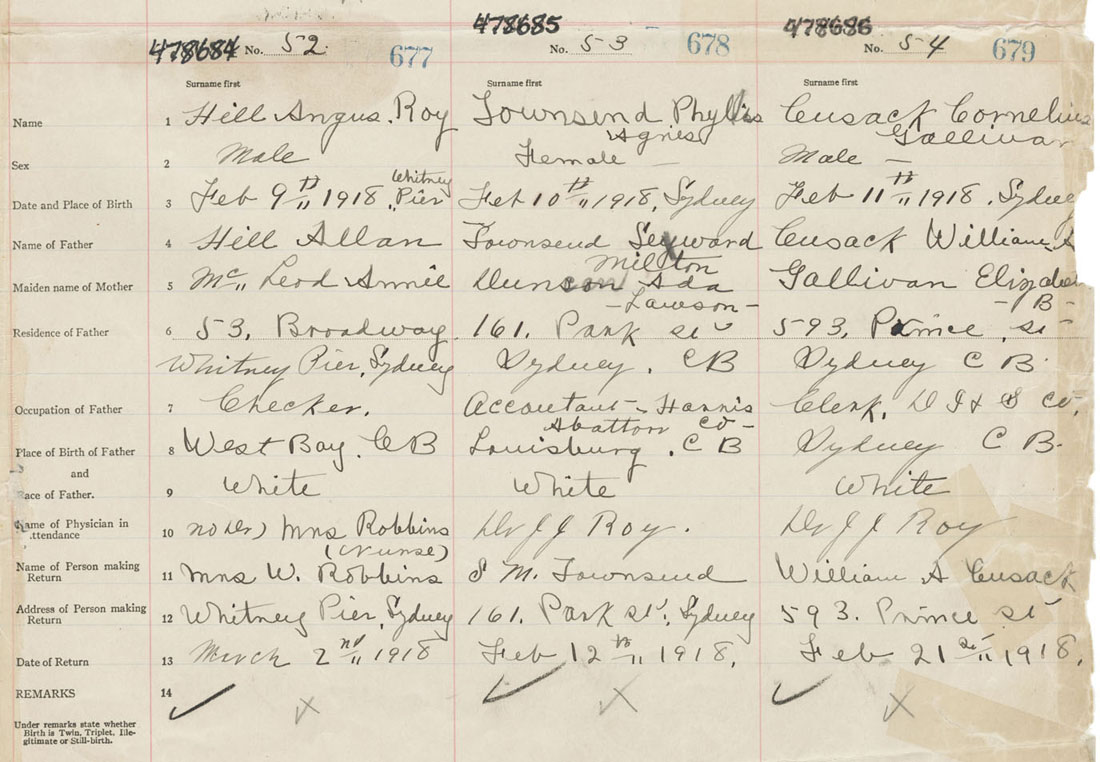 478684 No. 52. 677 478685 No. 53 678 478686 No. 54 679
Surname first Surname first Surname first
Name 1 Hill Angus. Roy Townsend Phyllis Cusack Cornelius
Agnes Gallivan
Sex 2 Male Female — Male —
Whitney
Date and Place of Birth 3 Feb 9th 1918. Pier Feb 10th 1918, Sydney Feb 11th 1918. Sydney
Name of Father 4 Hill Allan Townsend Seyward Cusack William A
Milton
Maiden name of Mother 5 Mc Leod Annie Duncan Ada Gallivan Elizabeth
— Lawson — — B —
Residence of Father 6 53, Broadway 161. Park St 593, Prince St
Whitney Pier, Sydney Sydney. C B Sydney C B.
Occupation of Father 7 Checker. Accoutant - Harris Clerk, D I & S Co.
Abattoir Co —
Place of Birth of Father 8 West Bay. C B Louisburg. C B Sydney C B.
and
Race of Father. 9 White White White
Name of Physician in
Attendance 10 no Dr) Mrs Robbins Dr J J Roy. Dr J J Roy
(Nurse)
Name of Person making
Return 11 Mrs W. Robbins S M. Townsend William A Cusack
Address of Person making
Return 12 Whitney Pier, Sydney 161. Park St, Sydney 593. Prince St
Date of Return 13 March 2nd 1918 Feb 12th 1918, Feb 21st 1918,
REMARKS 14
Under remarks state whether
Birth is Twin, Triplet, Ille-
gitimate or Still-birth.